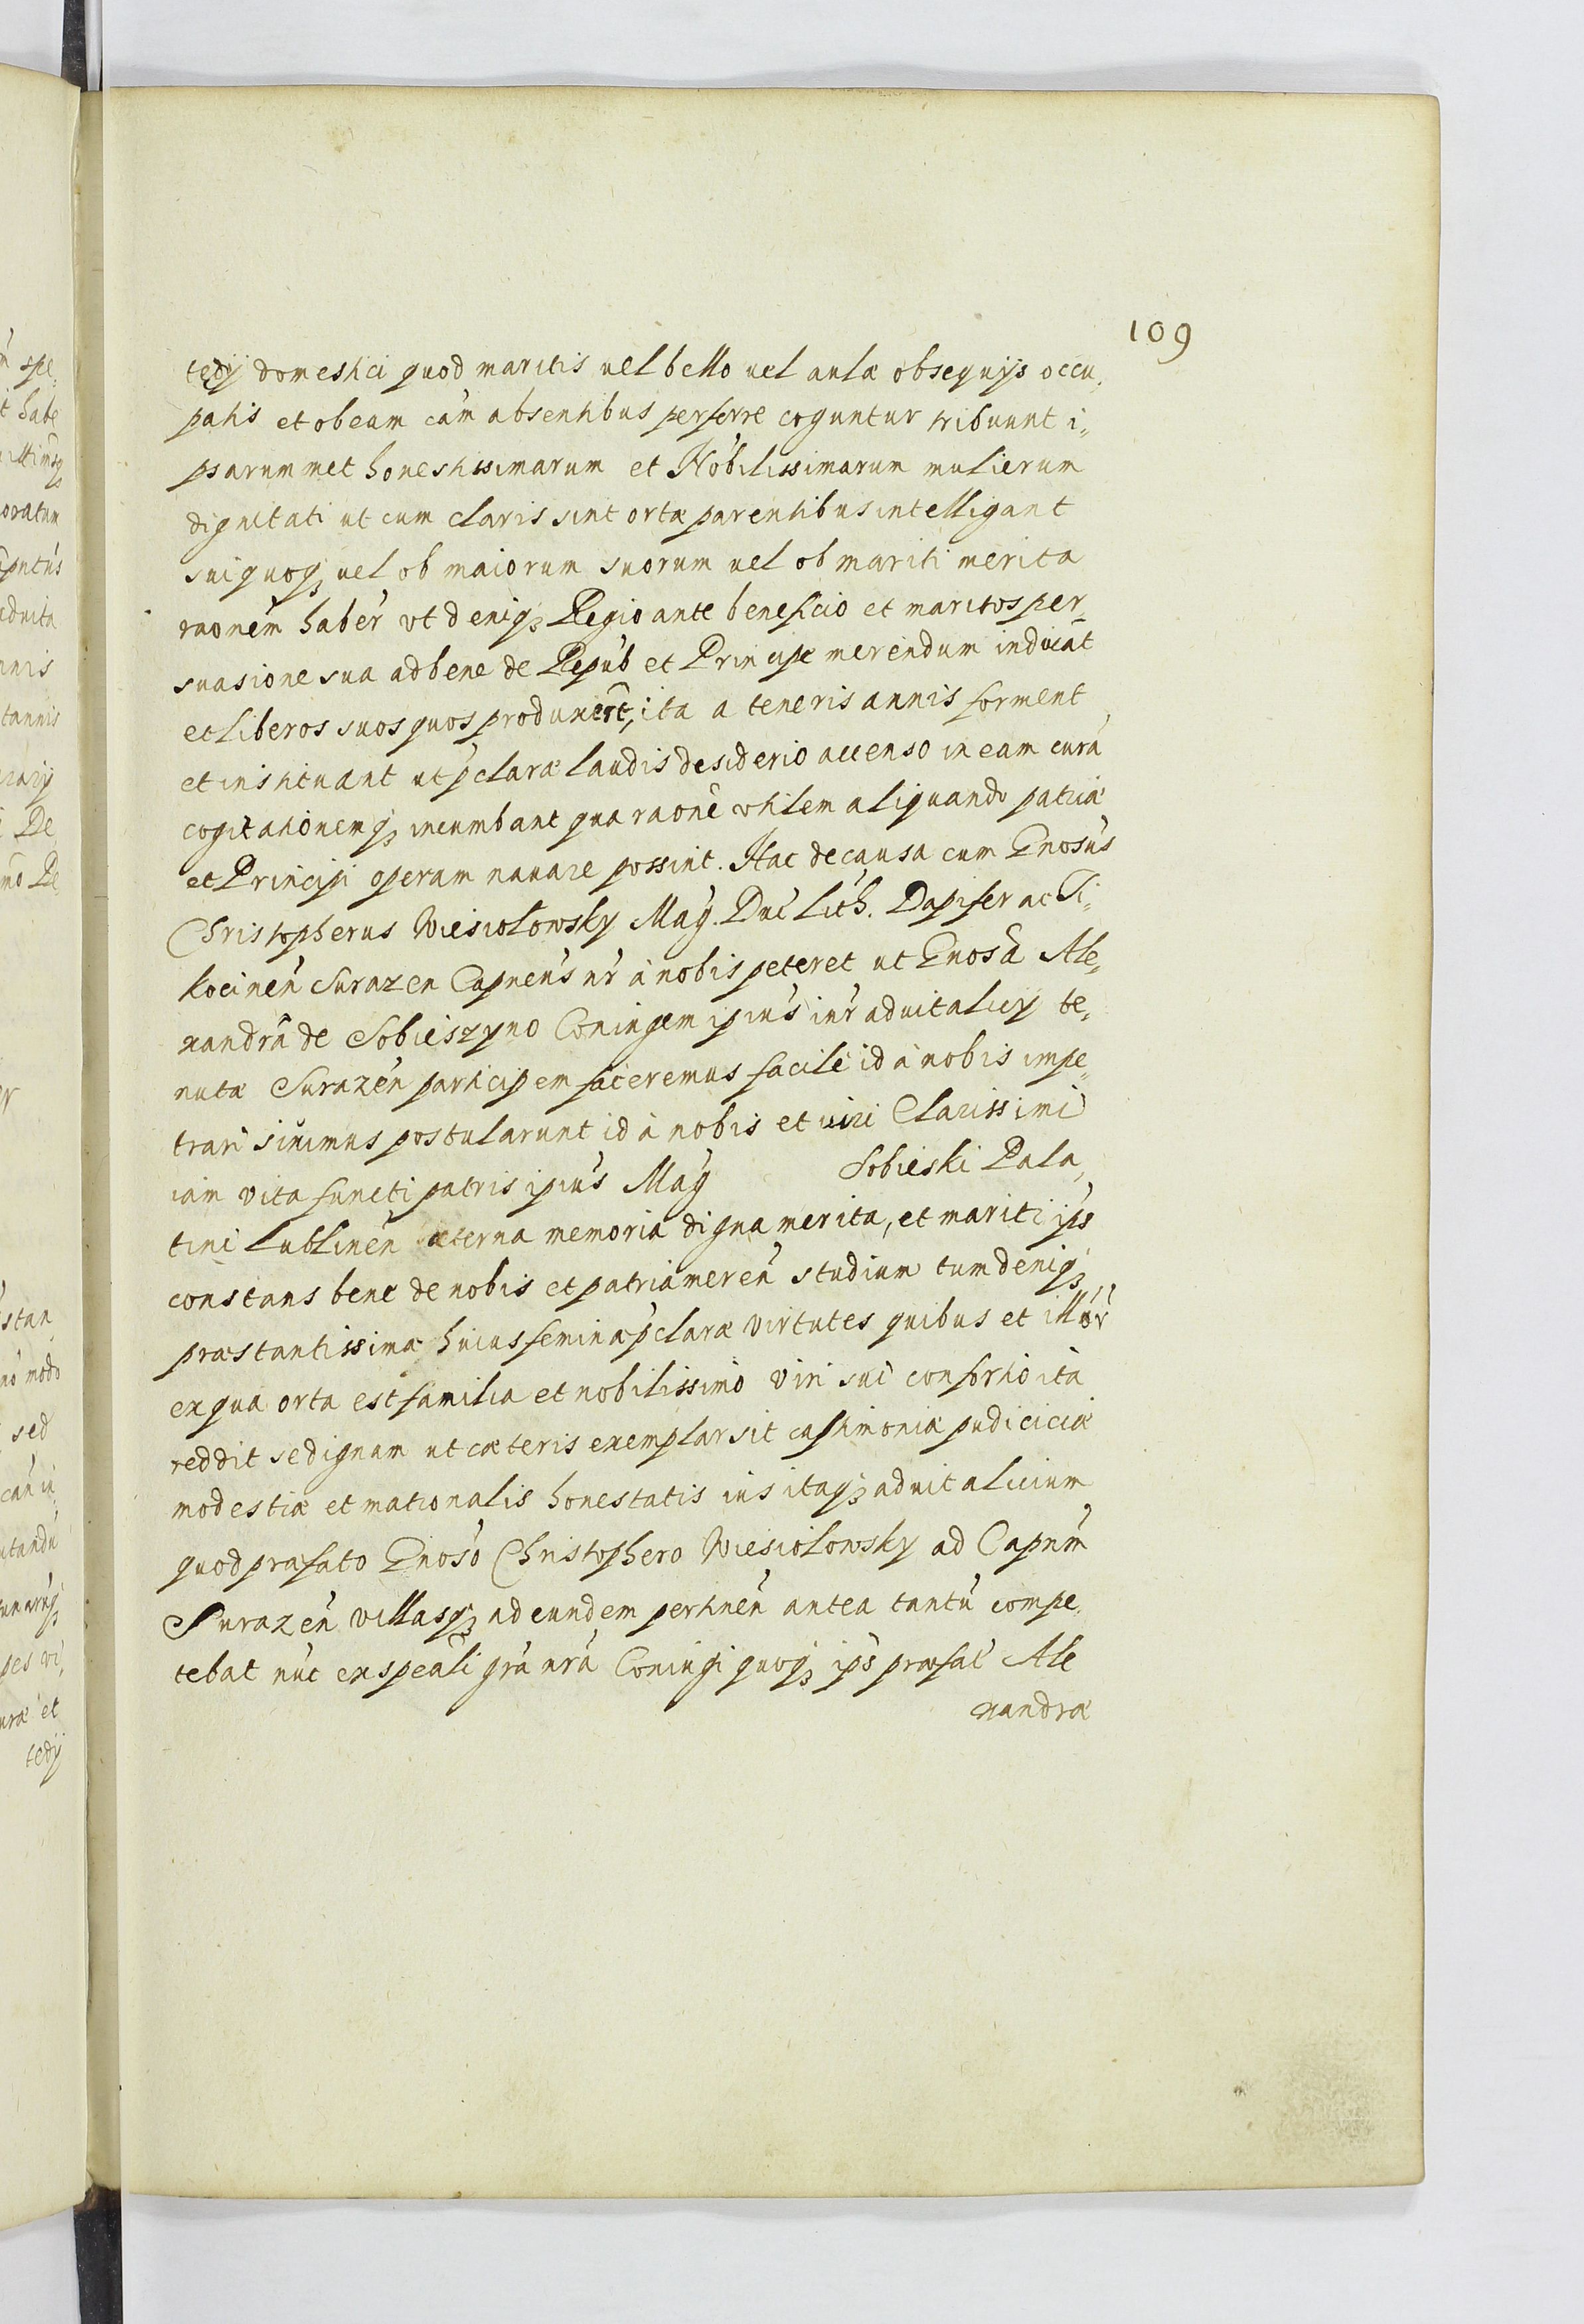 109
tedij domestici quod maritis uel bello uel aulæ obsequijs occu,
patis et ob eam cām absentibus perferre coguntur tribuunt i,,
psarummet honestissimarum et Nobilissimarum mulierum
dignitati ut cum claris sint ortæ parentibus intelligant
sui quoq̢ uel ob maiorum suorum uel ob mariti merita
raonem̄ haber̄ vt deniq̢ Regio ante beneficio et maritos per,
suasione sua ad bene de Repub̄ et Principe merendum inducāt
et liberos suos quos produxert̄, ita a teneris annis forment
et instituant ut p̄claræ laudis desiderio accenso in eam curā
cogitationemq̢ incumbant qua raone vtilem aliquando patriæ
et Principi operam nauare possint. Hac de causa cum Gnosūs
Christophorus Wiesiolowsky Maḡ. Duc̄ Lith̄. Dapifer ac Ti,
kocinen̄ Surazen Capneūs nr̄ à nobis peteret ut Gnosā Ale,
xandrā de Sobieszyno Coniugem ipiūs iur̄ aduitalicij te,
nutæ Surazen̄ participem faceremus facile id à nobis impe,
trari siuimus postularunt id à nobis et uiri Clarissimi
iam vita functi patris ipiūs Maḡ Sobieski Pala,
tini Lublinen̄ æterna memoria digna merita, et mariti ip̄s
constans bene de nobis et patria meren̄ studium tum deniq̢
præstantissimæ huius feminæ p̄claræ virtutes quibus et illūr̄
ex qua orta est familia et nobilissimo viri sui consortio ita
reddit se dignam ut cæteris exemplar sit castimoniæ pudiciciæ
modestiæ et matronalis honestatis ius itaq̢ aduitalicium
quod præfato Gnosō Christophero Wiesiolowsky ad Capnūm
Surazen̄ villasq̢ ad eundem pertinen̄ antea tantū compe,
tebat nūc ex speāli gr̄a nr̄a Coniugi quoq̢ ip̄s præfat̄ Ale
xandræ